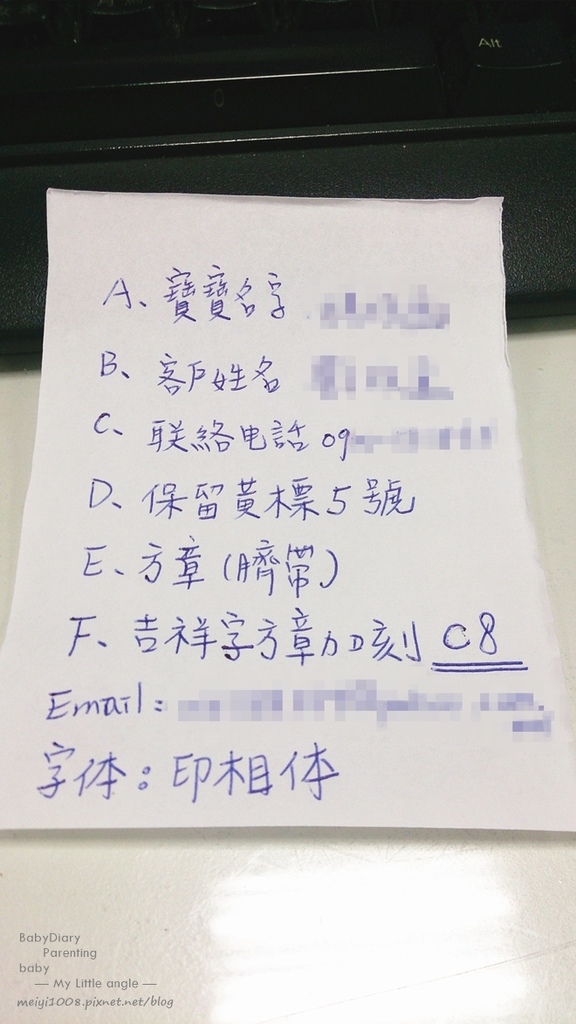 Alt
A、寶寶名字
B、客戶姓名
C、联絡电話 09
D、保留黃標5號
E、方章(臍帶)
F、吉祥字方章加刻 C8
Email:
字体:印相体
BabyDiary
Parenting
baby
— My Little angle —
meiyi1008.pixnet.net/blog